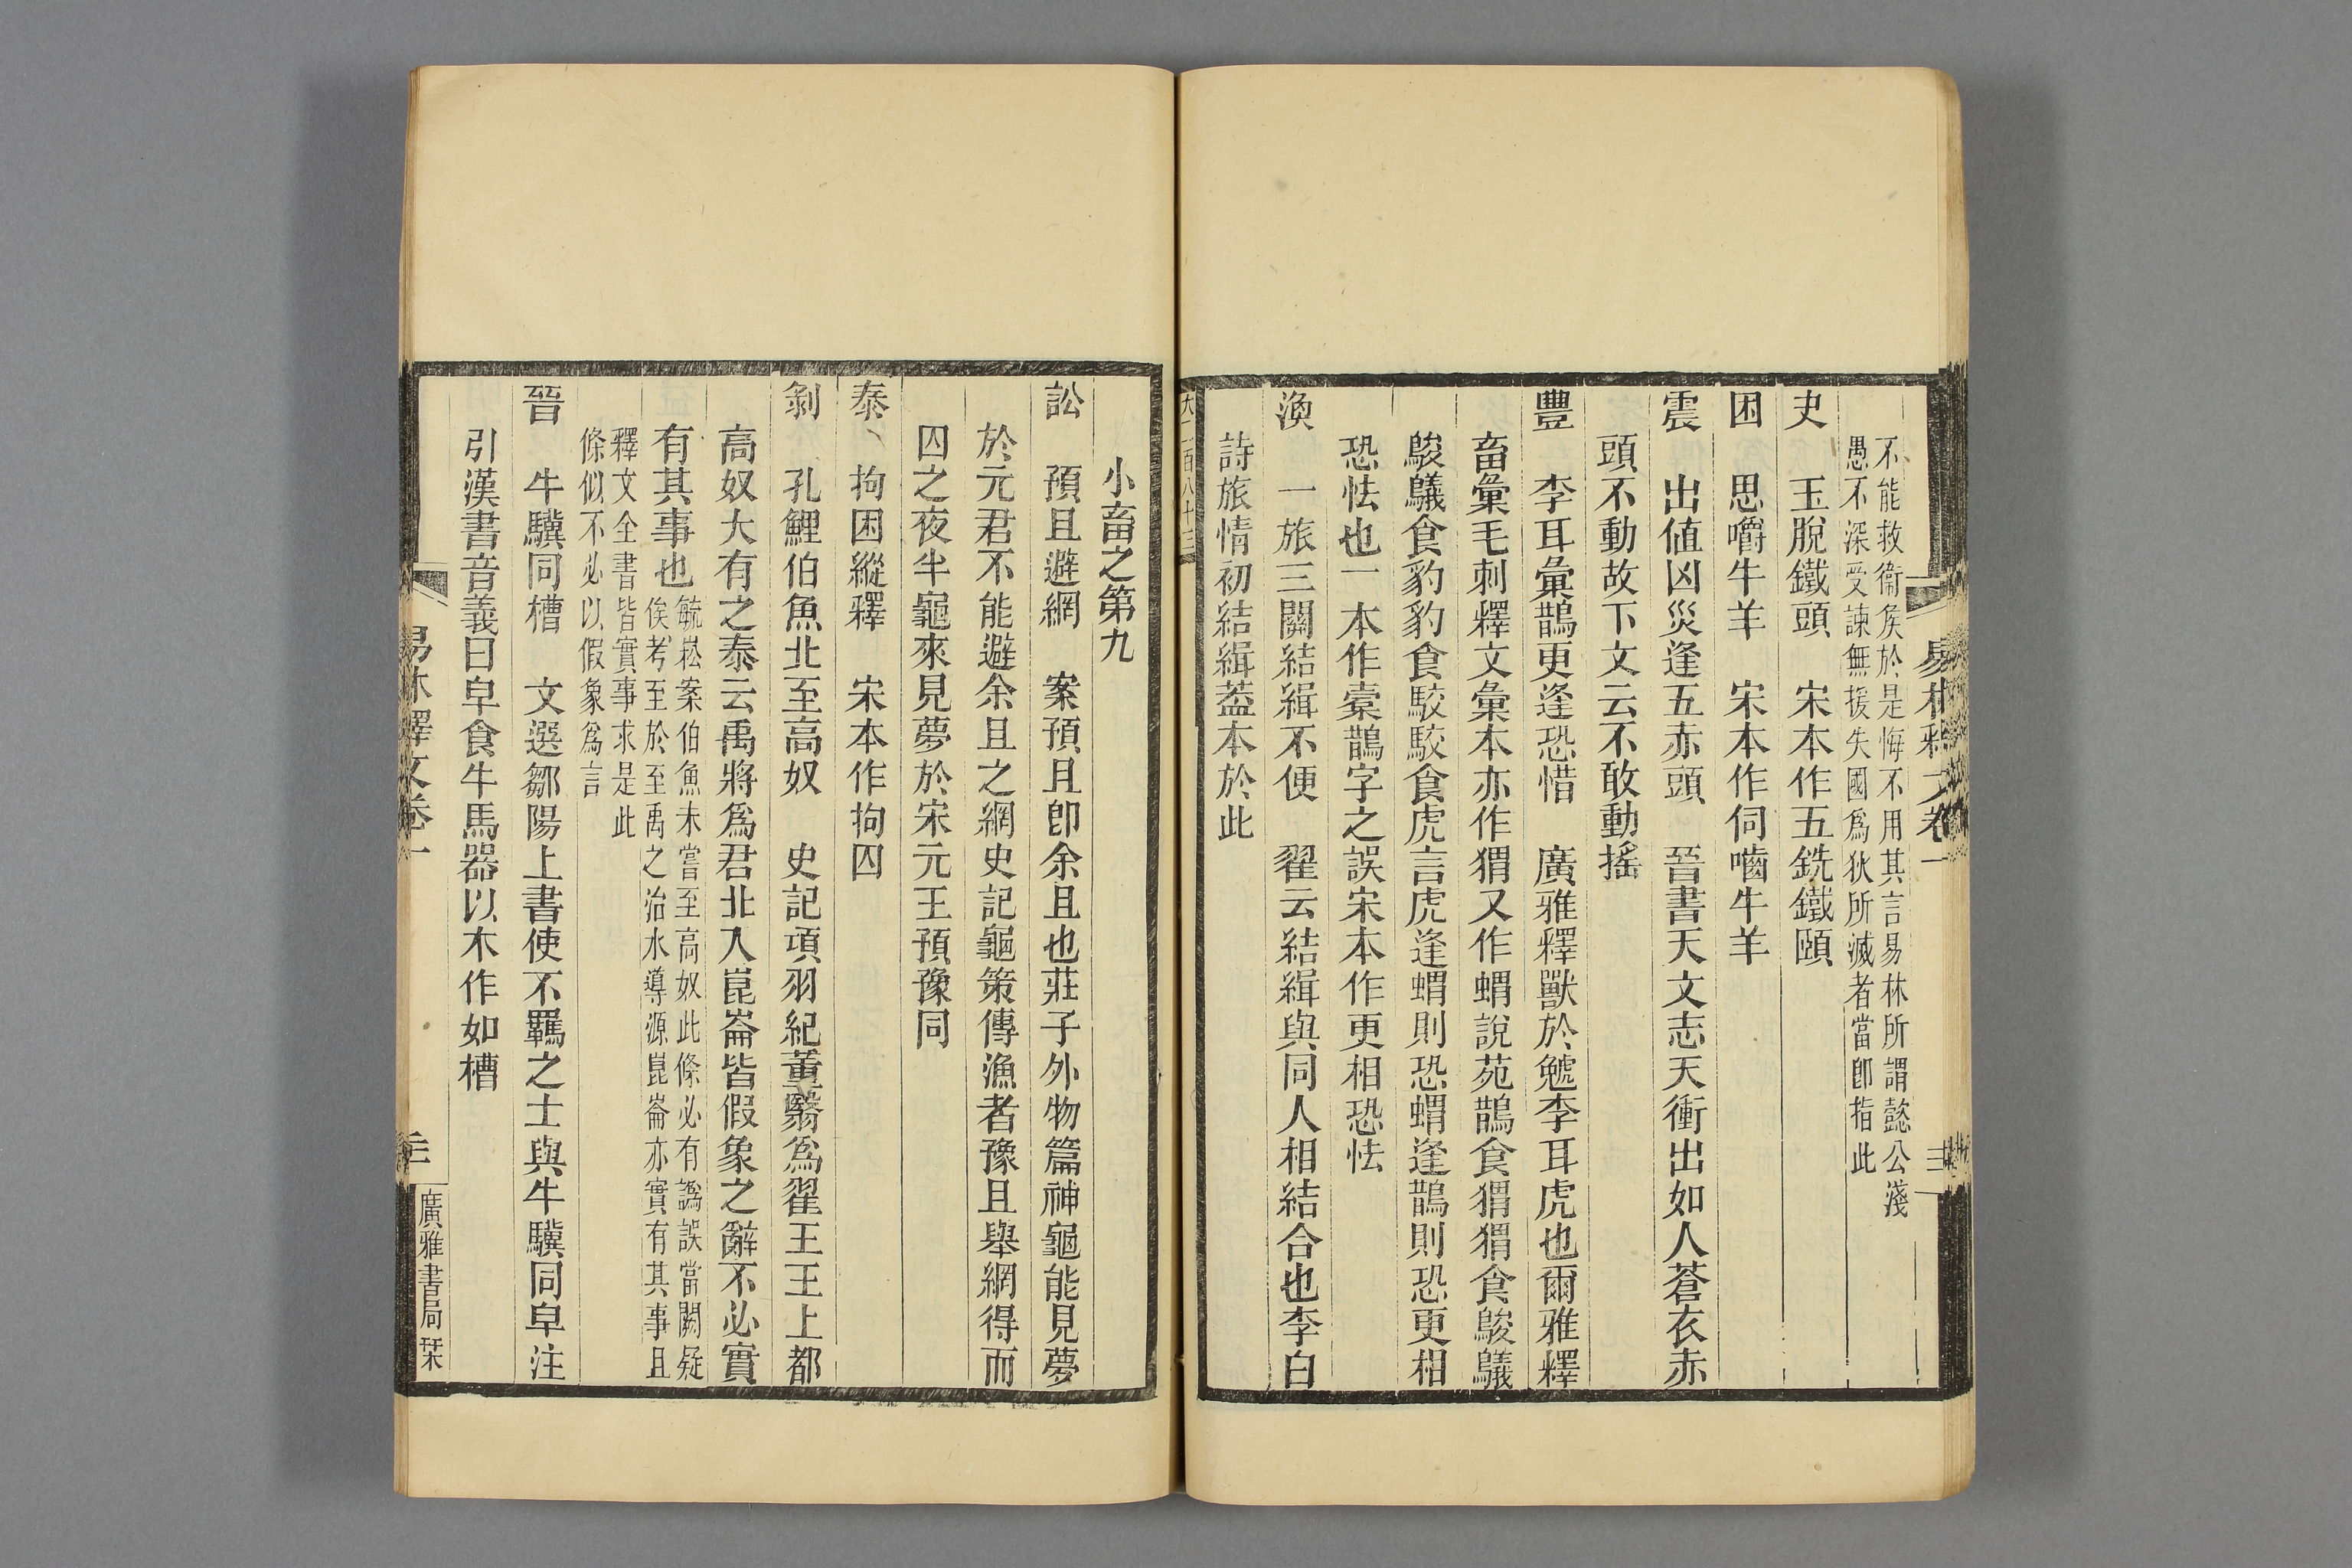 易林釋文卷一
三
不能救衞矦於是悔不用其言易林所謂懿公淺
愚不深受諫無援失國爲狄所滅者當卽指此
夬　玉脫鐵頭　宋本作五銑鐵頤
困　思嚼牛羊　宋本作伺嚙牛羊
震　出値凶災逢五赤頭　晉書天文志天衝出如人蒼衣赤
頭不動故下文云不敢動搖
豐　李耳彙鵲更逢恐惜　廣雅釋獸於䖘李耳虎也爾雅釋
畜彙毛刺釋文彙本亦作猬又作蝟說苑鵲食猬猬食鵔鸃
鵔鸃食豹豹食駮駮食虎言虎逢蝟則恐蝟逢鵲則恐更相
恐怯也一本作槖鵲字之誤宋本作更相恐怯
渙　一旅三關結緝不便　翟云結緝與同人相結合也李白
詩旅情初結緝葢本於此
大二百八十三
小畜之第九
訟　預且避網　案預且卽余且也莊子外物篇神龜能見夢
於元君不能避余且之網史記龜策傳漁者豫且舉網得而
囚之夜半龜來見夢於宋元王預豫同
泰　拘困縱釋　宋本作拘囚
剝　孔鯉伯魚北至高奴　史記項羽紀董翳爲翟王王上都
高奴大有之泰云禹將爲君北入崑崙皆假象之辭不必實
有其事也
毓崧案伯魚未嘗至高奴此條必有譌誤當闕疑
俟考至於至禹之治水導源崑崙亦實有其事且
釋文全書皆實事求是此
條似不必以假象爲言
晉　牛驥同槽　文選鄒陽上書使不羈之士與牛驥同皁注
引漢書音義曰皁食牛馬器以木作如槽
易林釋文卷一
三
廣雅書局栞